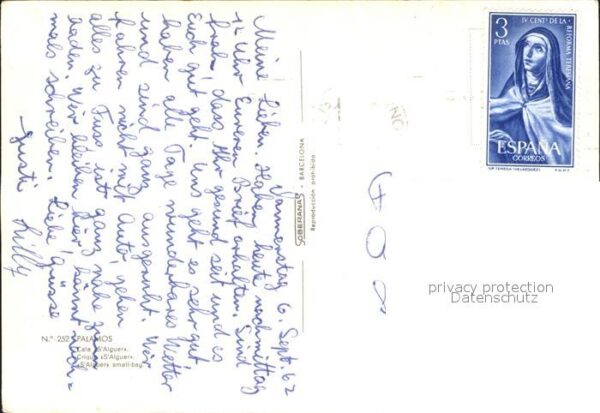 Donnerstag 6. Sept. 62
Meine Lieben. Haben heute nachmittag
14 Uhr Eueren Brief erhalten. Sind
froh, dass Ihr gesund seit und es
Euch gut geht. Uns geht es sehr gut
haben alle Tage wunderbares Wetter
und sind ganz ausgeruht. Wir
fahren nicht mit Auto, gehen
alles zu Fuss, ist ganz nahe zum
baden. Wir bleiben hier, könnt noch-
mals schreiben. Liebe Grüsse
Gusti Lilly
N.º 252 PALAMÓS
Cala «S'Alguer».
Crique «S'Alguer».
«S'Alguer» small-bay
SOBERANAS - BARCELONA
Reproducción prohibida
3
PTAS
IV CENTº DE LA REFORMA TERESIANA
ESPAÑA
CORREOS
Sª TERESA (VELAZQUEZ)
F.N.M.T.
privacy protection
Datenschutz